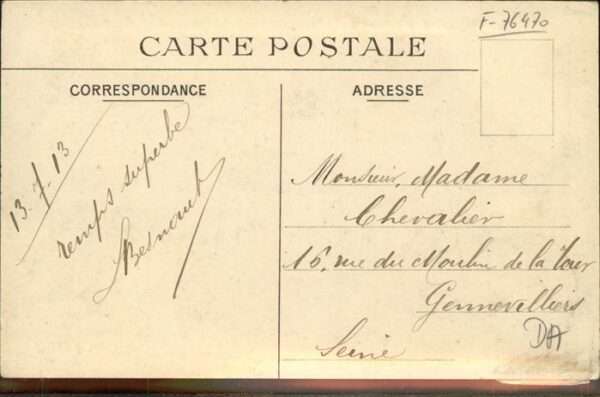 F-76470
CARTE POSTALE
CORRESPONDANCE
ADRESSE
13.7.13
temps superbe
Besnouet
Monsieur, Madame
Chevalier
16, rue du Moulin de la Tour
Gennevilliers
Seine
DA